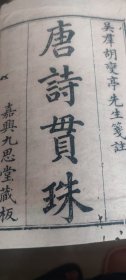 吳羣胡燮亭先生箋註
唐詩貫珠
嘉興九思堂藏板